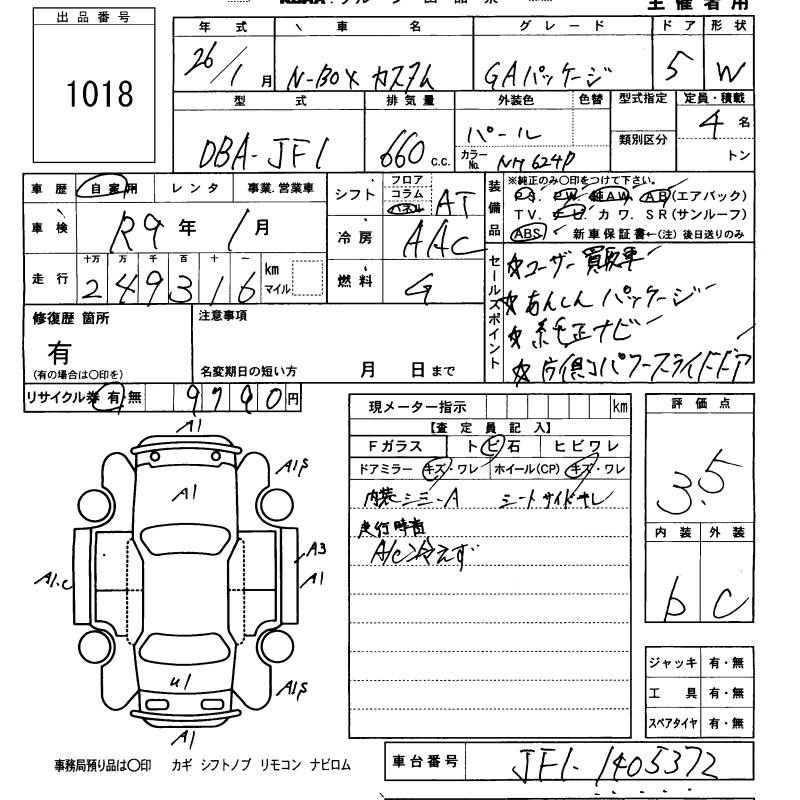 主催者用
出品番号
1018
年式 車名 グレード ドア 形状
26/1月 N-BOX カスタム GAパッケージ 5 W
型式 排気量 外装色 色替 型式指定 定員・積載
DBA-JF1 660 c.c. パール カラーNo. NH624P 類別区分 4名 トン
車歴 自家用 レンタ 事業.営業車
車検 R9年 1月
走行 十万 万 千 百 十 一
249316 km マイル
シフト フロア コラム パネル AT
冷房 AAC
燃料 G
装備品
※純正のみ〇印をつけて下さい。
P.S. P.W. 純AW. AB(エアバック)
T V. ナビ カワ. S R(サンルーフ)
ABS 新車保証書←(注) 後日送りのみ
セールスポイント
☆ユーザー買取車
☆あんしんパッケージ
☆純正ナビ
☆片側パワースライドドア
修復歴 箇所
有
(有の場合は〇印を)
注意事項
名変期日の短い方 月 日まで
リサイクル券 有・無 9790円
現メーター指示 km
【査定員記入】
Fガラス トビ石 ヒビワレ
ドアミラー キズ・ワレ ホイール(CP) キズ・ワレ
シートサイドサレ
走行時音
A/C冷えず
評価点
3.5
内装 外装
b C
ジャッキ 有・無
工具 有・無
スペアタイヤ 有・無
A1
A1S
A1
A3
A1
A1.C
U1
A1S
A1
事務局預り品は〇印 カギ シフトノブ リモコン ナビロム
車台番号 JF1-1405372